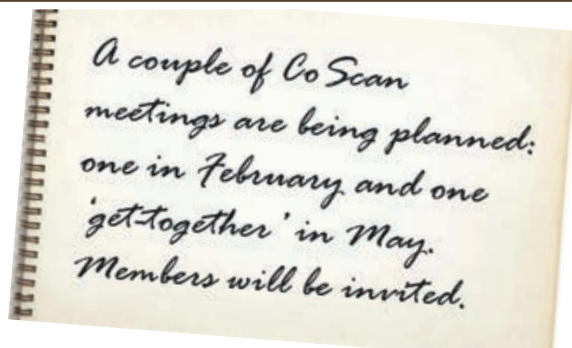 A couple of CoScan
meetings are being planned:
one in February and one
'get-together' in May.
Members will be invited.